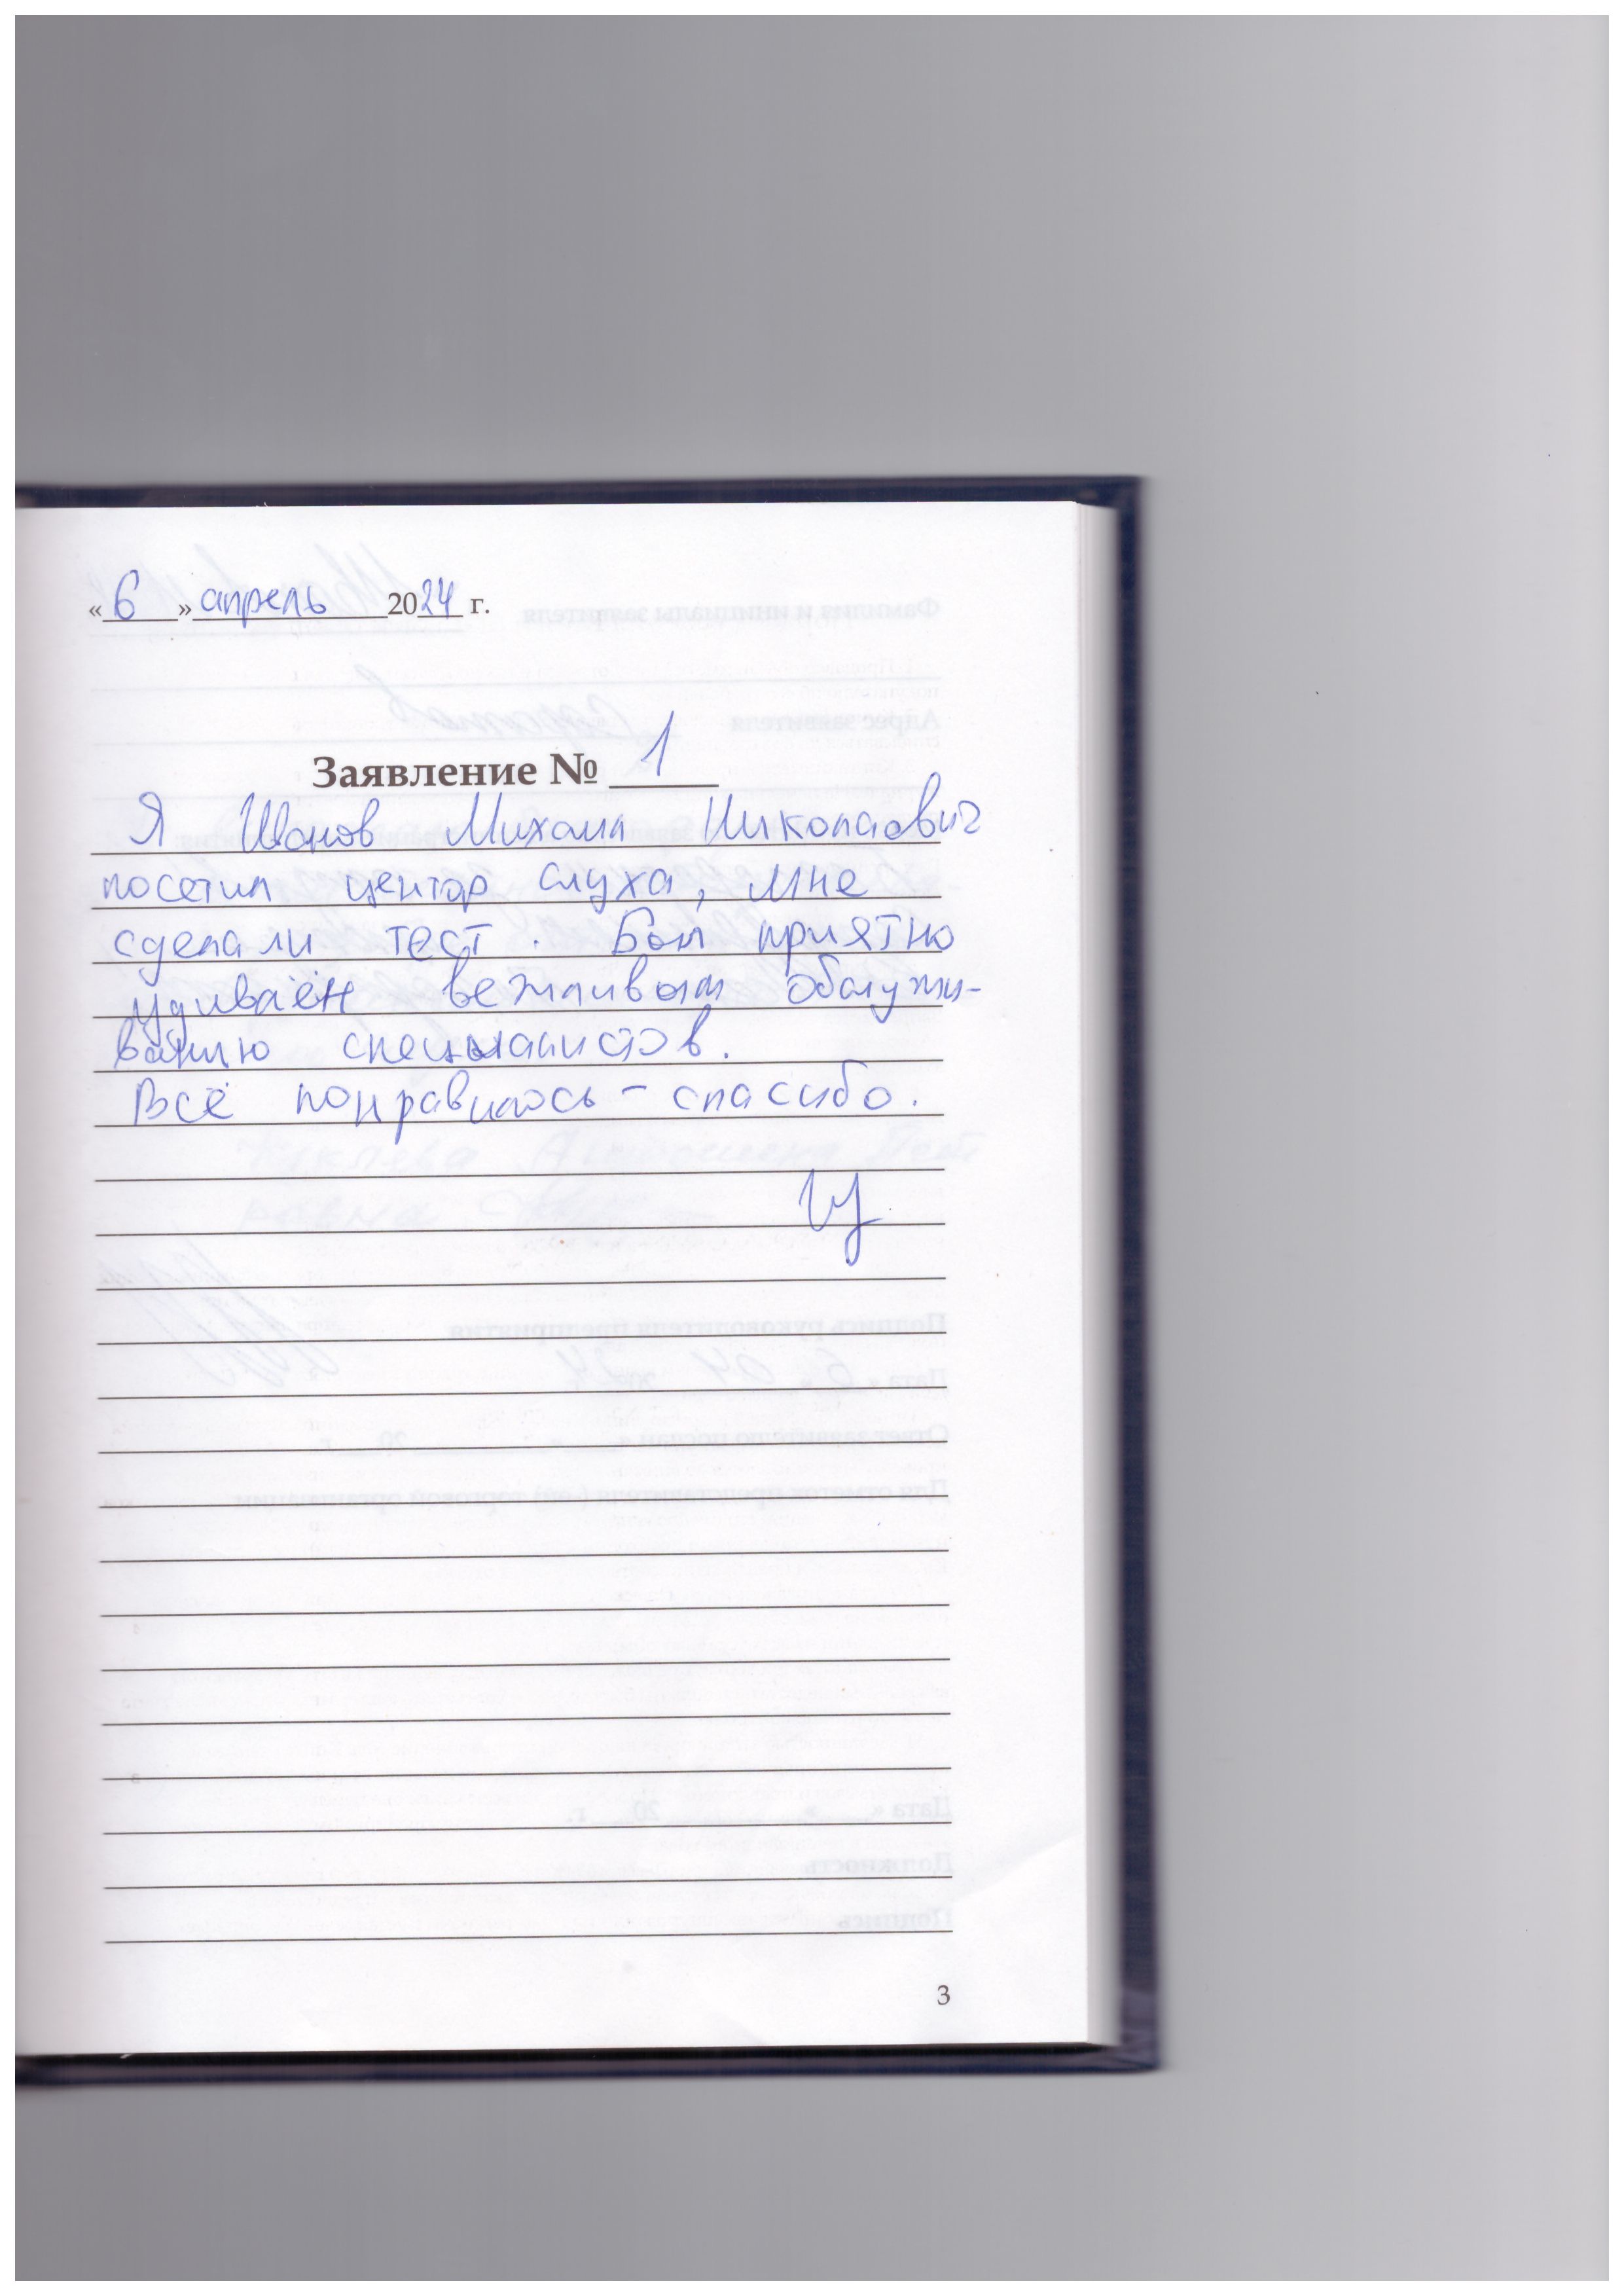 «6» апрель 2024 г.
Заявление № 1
Я Иванов Михаил Николаевич
посетил центр слуха, мне
сделали тест. Был приятно
удивлён вежливым обслужи-
ванию специалистов.
Всё понравилось - спасибо.
3